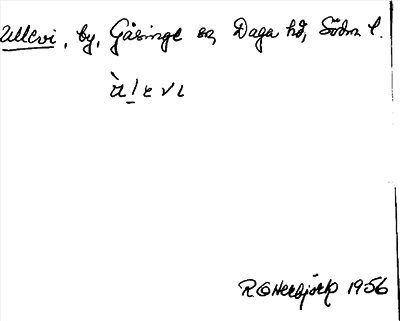 Ullevi, by, Gåsinge sn, Daga hd, Södm l.
ùlevɩ
R O Herbjörk 1956